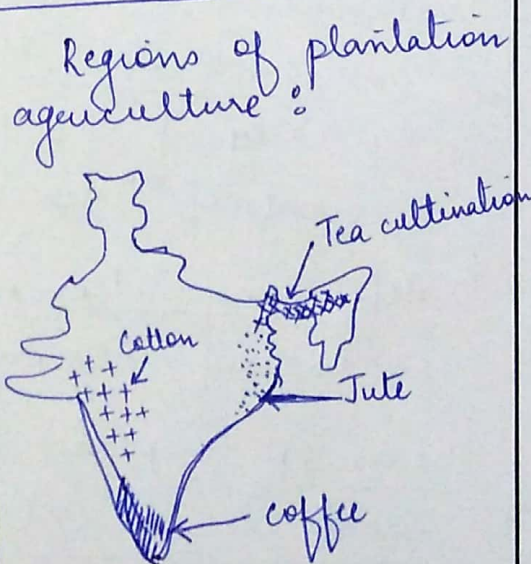 Regions of plantation
agriculture :
Tea cultivation
Cotton
Jute
coffee